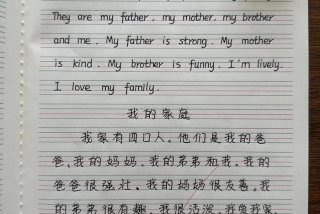 They are my father, my mother, my brother
and me. My father is strong. My mother
is kind. My brother is funny. I'm lively.
I love my family.
我的家庭
我家有四口人。他们是我的爸
爸、我的妈妈、我的弟弟和我。我的
爸爸很强壮。我的妈妈很友善。我
的弟弟很有趣。我很活泼。我爱我家。